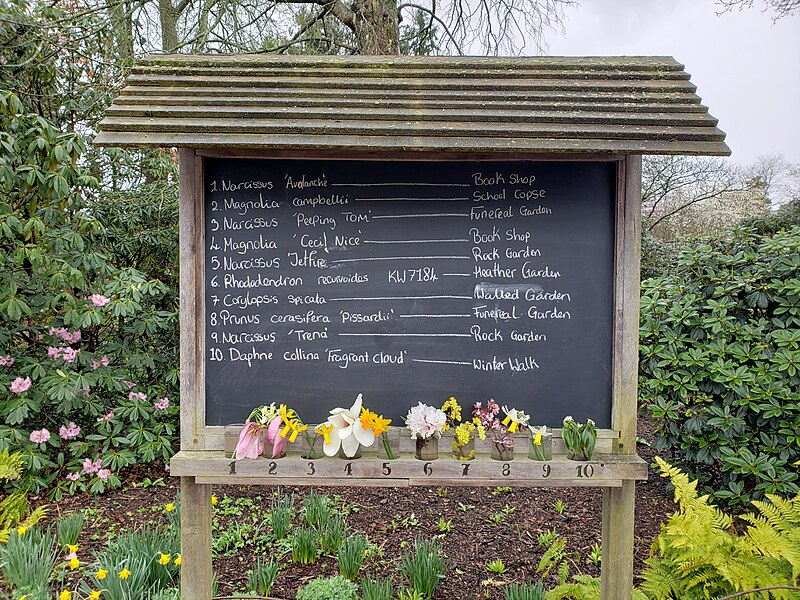 1. Narcissus 'Avalanche' Book Shop
2. Magnolia campbellii School Copse
3 Narcissus 'Peeping Tom' Funereal Garden
4. Magnolia 'Cecil Nice' Book Shop
5. Narcissus 'Jetfire Rock Garden
6. Rhododendron recurvoides KW7184 Heather Garden
7 Corylopsis spicata Walled Garden
8. Prunus cerasifera 'Pissardii' Funereal Garden
9. Narcissus 'Trena' Rock Garden
10. Daphne collina 'Fragrant Cloud' Winter Walk
1 2 3 4 5 6 7 8 9 10